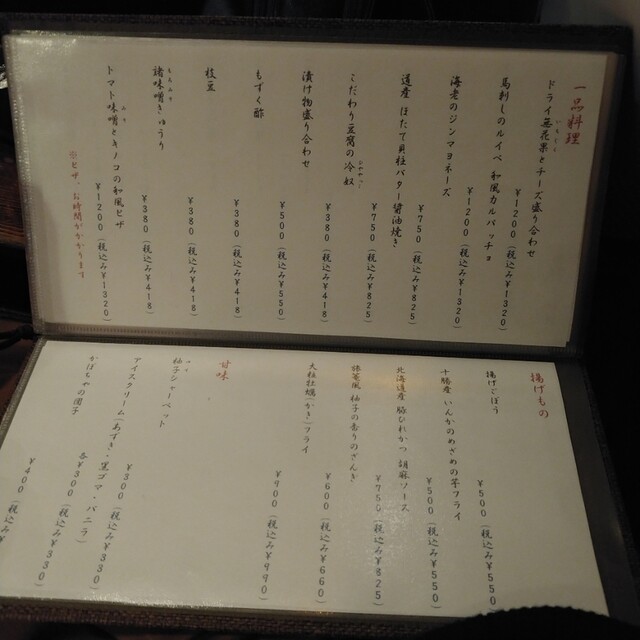 一品料理
ドライ無花果とチーズ盛り合わせ
¥1200（税込み¥1320）
馬刺しのルイベ 和風カルパッチョ
¥1200（税込み¥1320）
海老のジンマヨネーズ
¥750（税込み¥825）
道産 ほたて貝柱バター醤油焼き
¥750（税込み¥825）
こだわり豆腐の冷奴
¥380（税込み¥418）
漬け物盛り合わせ
¥500（税込み¥550）
もずく酢
¥380（税込み¥418）
枝豆
¥380（税込み¥418）
諸味噌きゅうり
¥380（税込み¥418）
トマト味噌とキノコの和風ピザ
¥1200（税込み¥1320）
※ピザ、お時間がかかります
揚げもの
揚げごぼう
¥500（税込み¥550）
十勝産 いんかのめざめの芋フライ
¥500（税込み¥550）
北海道産 豚ひれかつ 胡麻ソース
¥750（税込み¥825）
抹茶風 柚子の香りのざんぎ
¥600（税込み¥660）
大粒牡蠣（かき）フライ
¥900（税込み¥990）
甘味
柚子シャーベット
¥300（税込み¥330）
アイスクリーム（あずき・黒ゴマ・バニラ）
各¥300（税込み¥330）
かぼちゃの団子
¥400（税込み¥